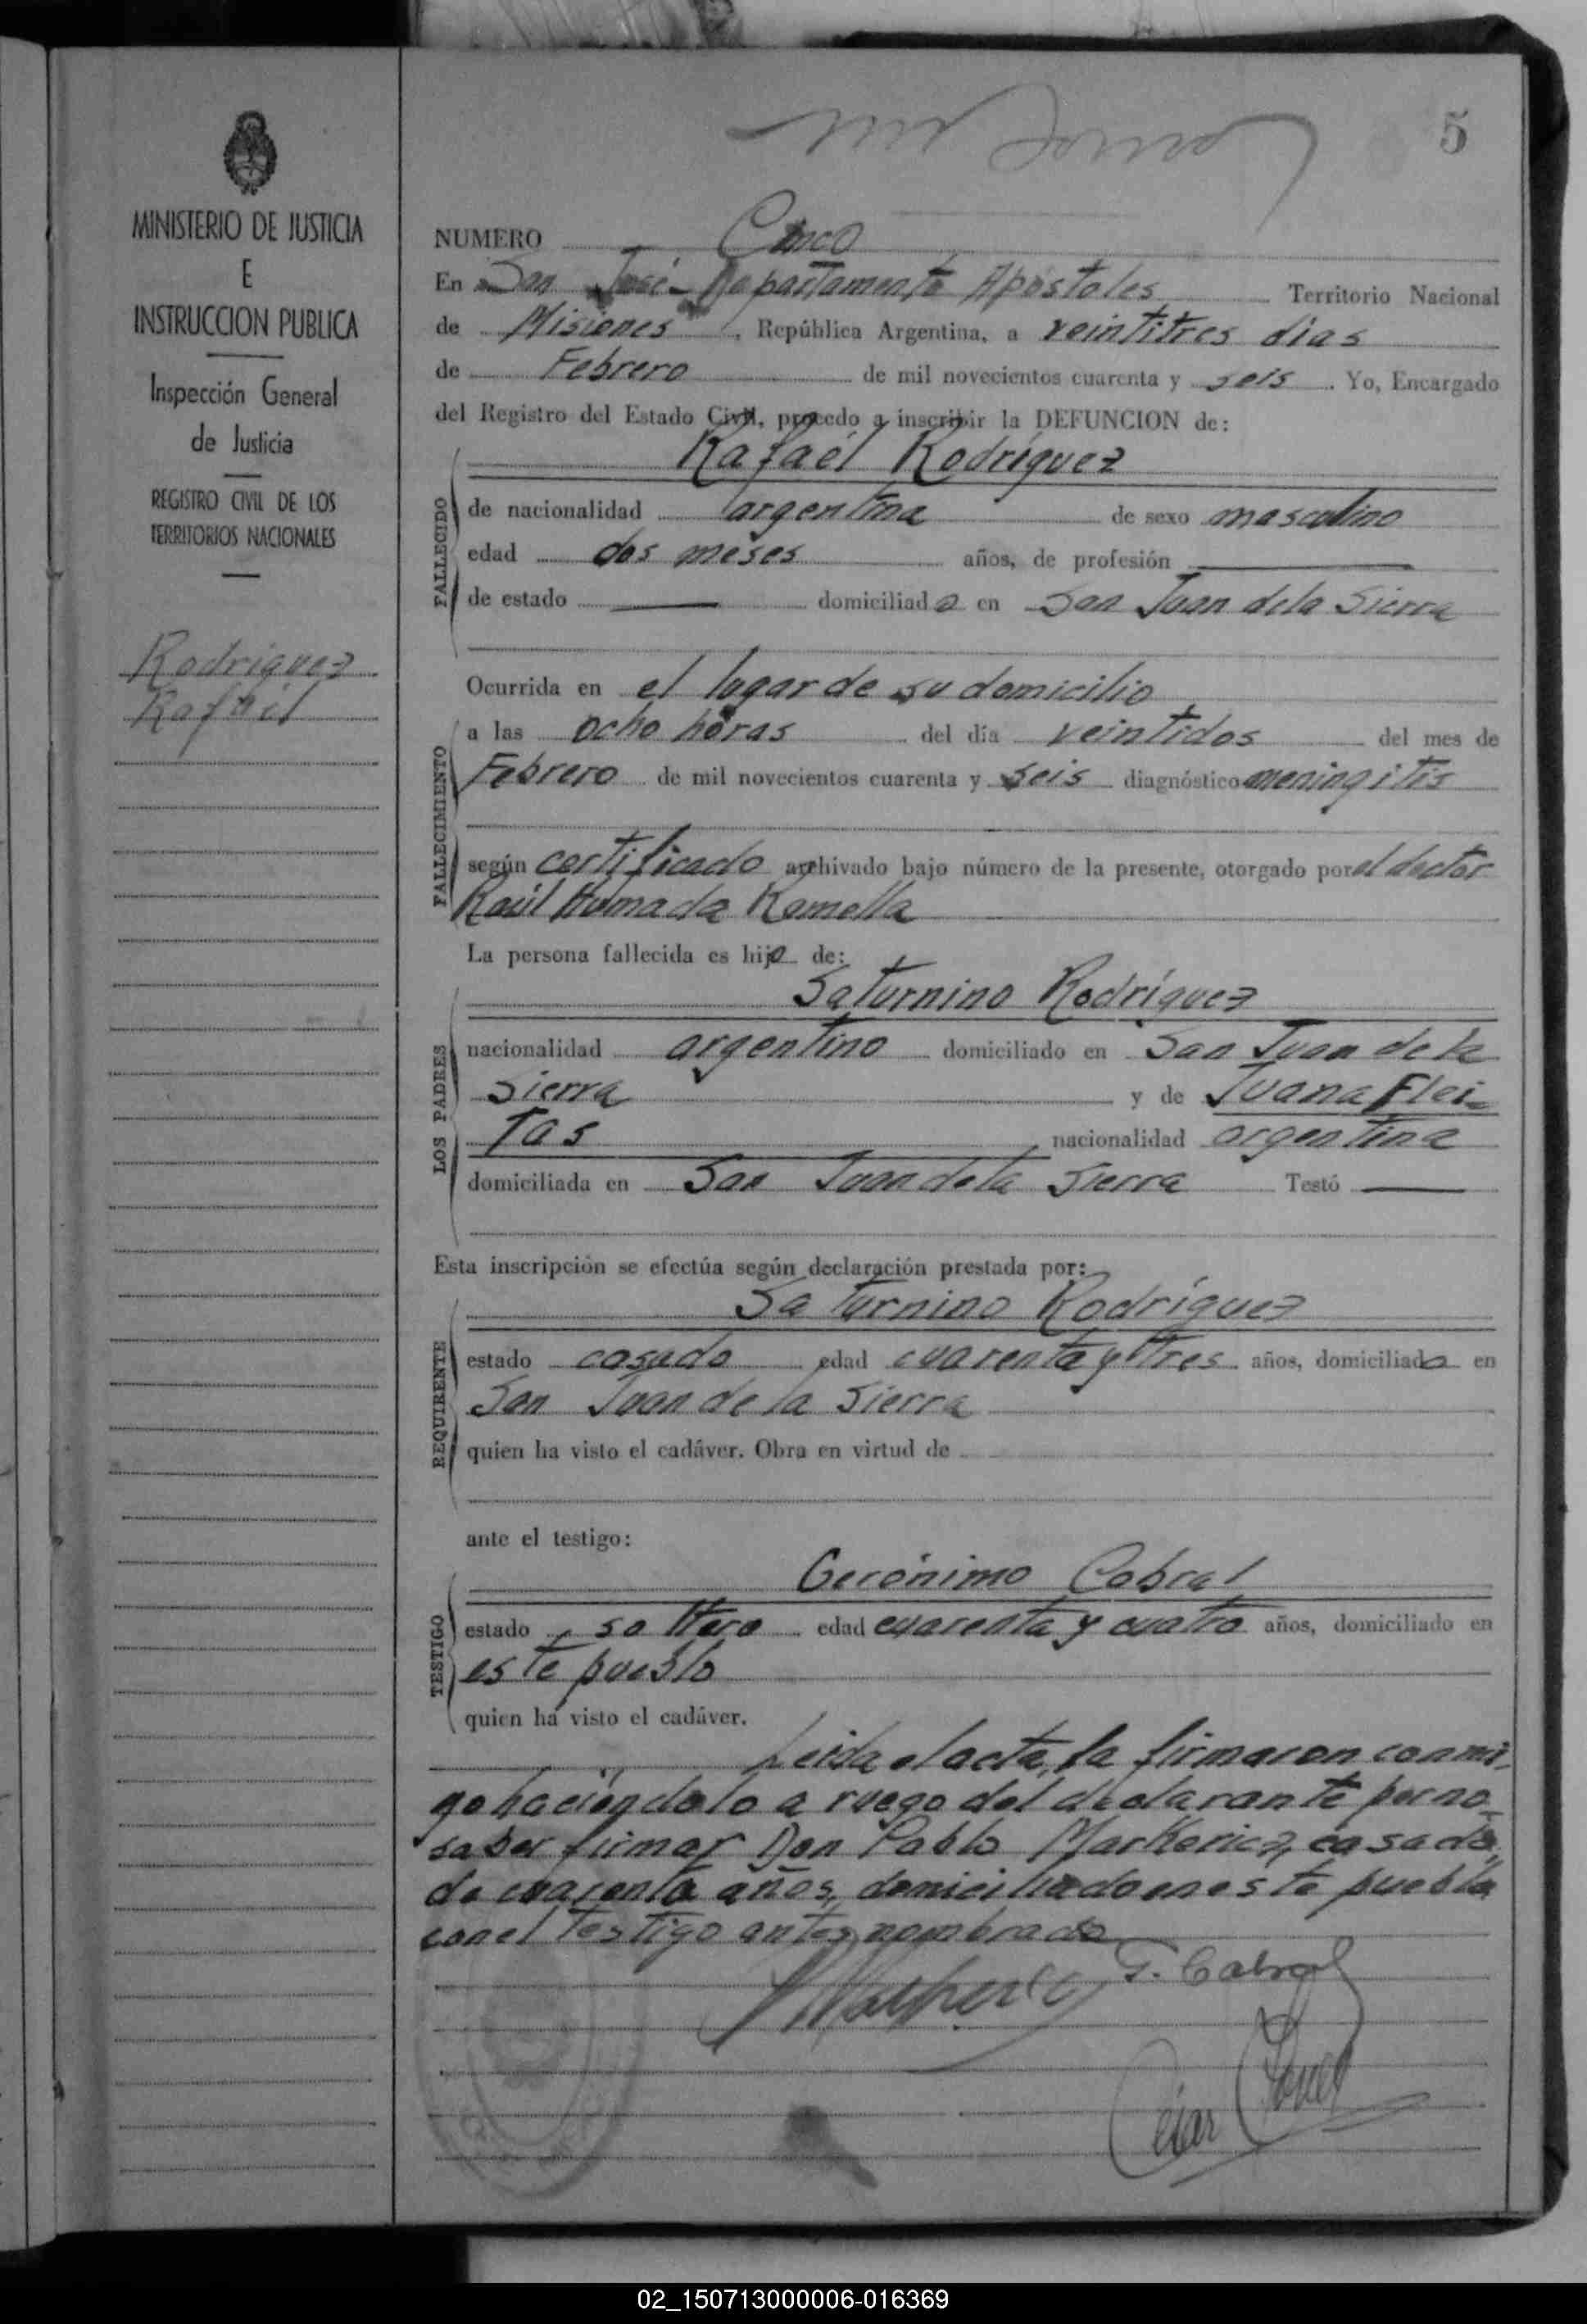 5
MINISTERIO DE JUSTICIA
E
INSTRUCCION PUBLICA
Inspección General
de Justicia
REGISTRO CIVIL DE LOS
TERRITORIOS NACIONALES
Rodriguez
Rafael
NUMERO Cinco
En San José - Departamento Apóstoles Territorio Nacional
de Misiones, República Argentina, a veintitres dias
de Febrero de mil novecientos cuarenta y seis. Yo, Encargado
del Registro del Estado Civil, procedo a inscribir la DEFUNCION de:
Rafaél Rodríguez
FALLECIDO
de nacionalidad argentina de sexo masculino
edad dos meses años, de profesión
de estado domiciliado en San Juan de la Sierra
Ocurrida en el lugar de su domicilio
FALLECIMIENTO
a las ocho horas del día veintidos del mes de
Febrero de mil novecientos cuarenta y seis diagnóstico meningitis
según certificado archivado bajo número de la presente, otorgado por el doctor
Raúl Humada Ramella
La persona fallecida es hijo de:
Saturnino Rodríguez
LOS PADRES
nacionalidad argentino domiciliado en San Juan de la
Sierra y de Juana Flei-
tas nacionalidad argentina
domiciliada en San Juan de la Sierra Testó
Esta inscripción se efectúa según declaración prestada por:
Saturnino Rodríguez
REQUIRENTE
estado casado edad cuarenta y tres años, domiciliado en
San Juan de la Sierra
quien ha visto el cadáver. Obra en virtud de
ante el testigo:
Gerónimo Cabral
TESTIGO
estado soltero edad cuarenta y cuatro años, domiciliado en
este pueblo
quien há visto el cadáver.
Leida el acta, la firmaron conmi-
go haciéndolo a ruego del declarante por no
saber firmar Don Pablo Markericz, casado,
de cuarenta años, domiciliado en este pueblo
con el testigo antes nombrado
G. Cabral
César
02_150713000006-016369